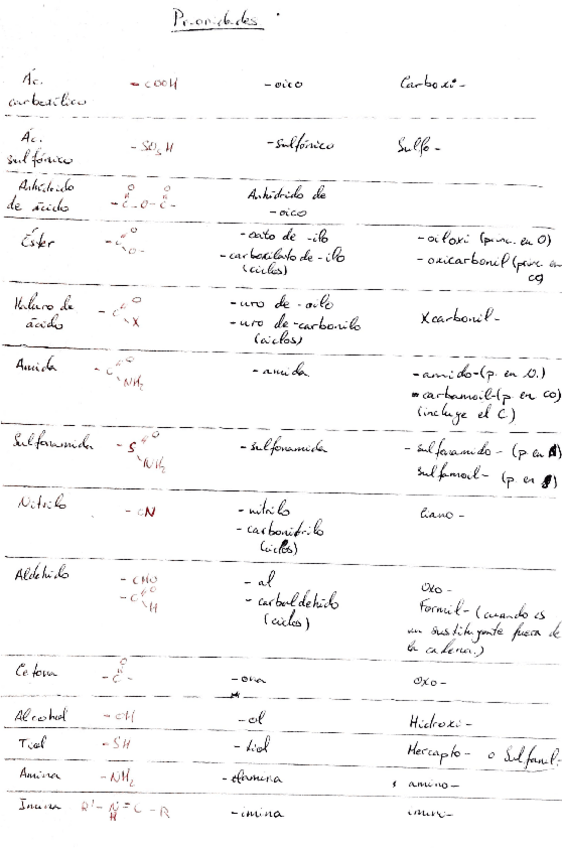 Prioridades
Ác. carboxílico -COOH -oico Carboxi-
Ác. sulfónico -SO3H -sulfónico Sulfo-
Anhídrido de ácido -C-O-C- O O Anhídrido de -oico
Éster -C O O- -oato de -ilo - oiloxi (princ. en O)
-carboxilato de -ilo (ciclos) - oxicarbonil (princ. en CO)
Haluro de ácido -C O X -uro de -oilo Xcarbonil-
-uro de -carbonilo (ciclos)
Amida -C O NH2 -amida -amido-(p. en N.)
-carbamoil-(p. en CO)
(incluye el C.)
Sulfonamida -S O NH2 -sulfonamida -sulfonamido- (p. en
sulfamoil- (p. en
Nitrilo -CN -nitrilo Ciano-
-carbonitrilo (ciclos)
Aldehido -CHO -al Oxo-
-C O H -carbaldehido (ciclos) Formil- (cuando es
un sustituyente fuera de
la cadena.)
Cetona -C- O -ona Oxo-
Alcohol -OH -ol Hidroxi-
Tiol -SH -tiol Mercapto- o Sulfanil-
Amina -NH2 amino-
Imina R'-N=C-R H -imina imini-